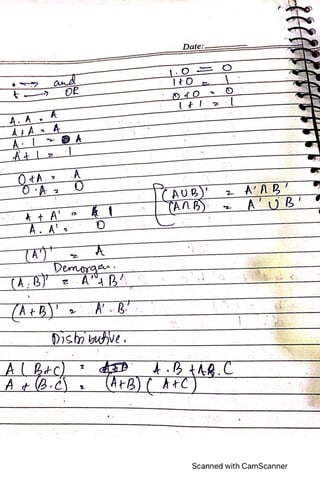 Date:
. → and
+ → OR
1.0 = 0
1+0 = 1
0+0 = 0
1+1 = 1
A.A = A
A+A = A
A.1 = A
A+1 = 1
0+A = A
0.A = 0
A+A' = 1
A.A' = 0
(A∪B)' = A'∩B'
(A∩B) = A'∪B'
(A')' = A
Demorgan.
(A.B)' = A'+B'
(A+B)' = A'.B'
Distributive.
A(B+C) = A.B+A.C
A+(B.C) = (A+B)(A+C)
Scanned with CamScanner